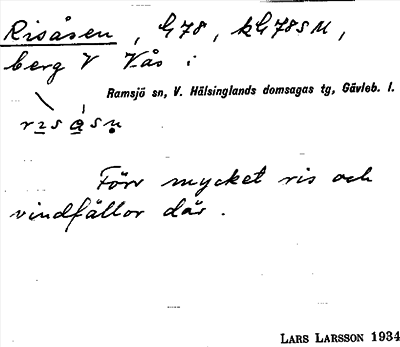 Risåsen, G 78, kG 78 s M,
berg V Vås i
Ramsjö sn, V. Hälsinglands domsagas tg, Gävleb. l.
Förr mycket ris och
vindfällor där.
LARS LARSSON 1934